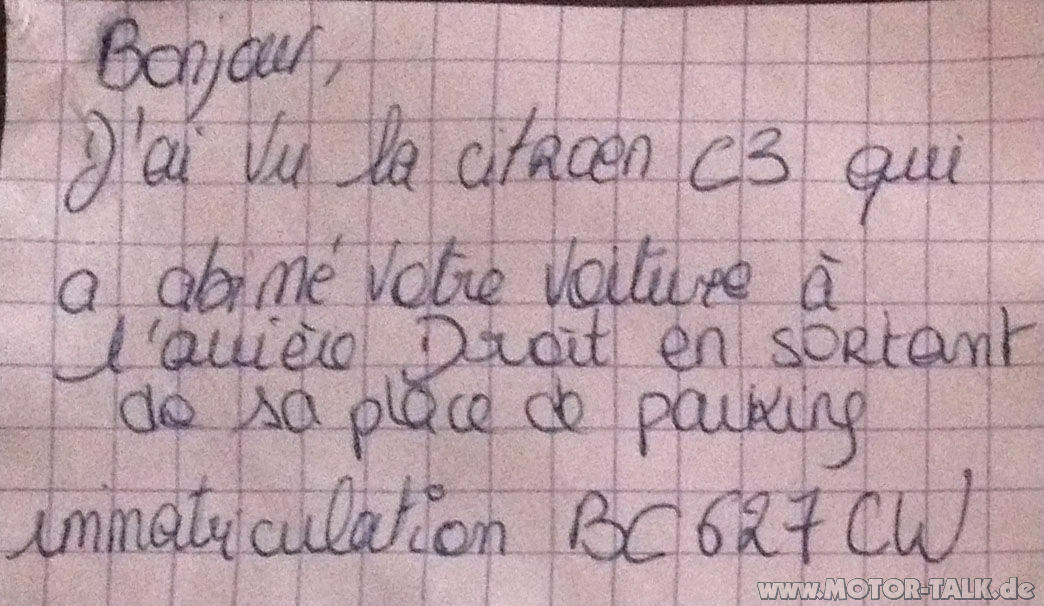 Bonjour,
J'ai vu la citroen C3 qui
a abimé votre voiture à
l'arrière Droit en sortant
de sa place de parking
immatriculation BC 627 CW
www.MOTOR-TALK.de